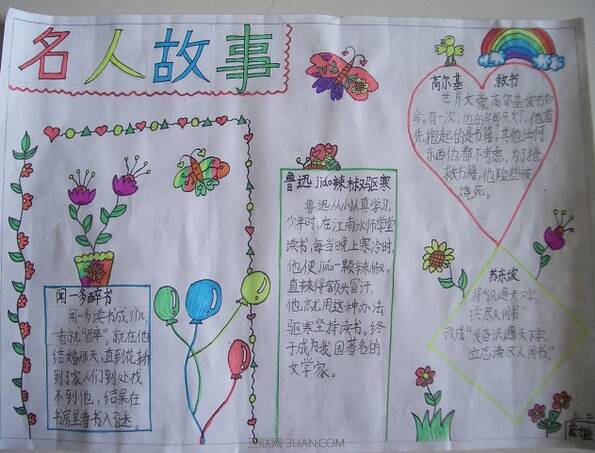 名人故事
闻一多醉书
闻一多读书成yǐn,
一看就"醉"。就在他
结婚那天,直到花轿
到了家人们到处找
不到他,结果在
书房里看书入了迷。
鲁迅jiáo辣椒驱寒
鲁迅从小认真学习,
少年时,在江南水师学堂
读书,每当晚上寒冷时,
他便jiáo一颗辣椒,
直辣得额头冒汗,
他就用这种办法
驱寒坚持读书。终
于成为我国著名的
文学家。
高尔基 救书
世界文豪高尔基爱书如
命。有一次,他的房间失火了,他首
先抱起的是书籍,其他任何
东西他都不考虑,为了抢
救书籍,他险些被
烧死。
苏东坡
识遍天下字,
读尽人间书"
改成"发奋识遍天下字,
立志读尽人间书。"
三联网 3LIAN.COM